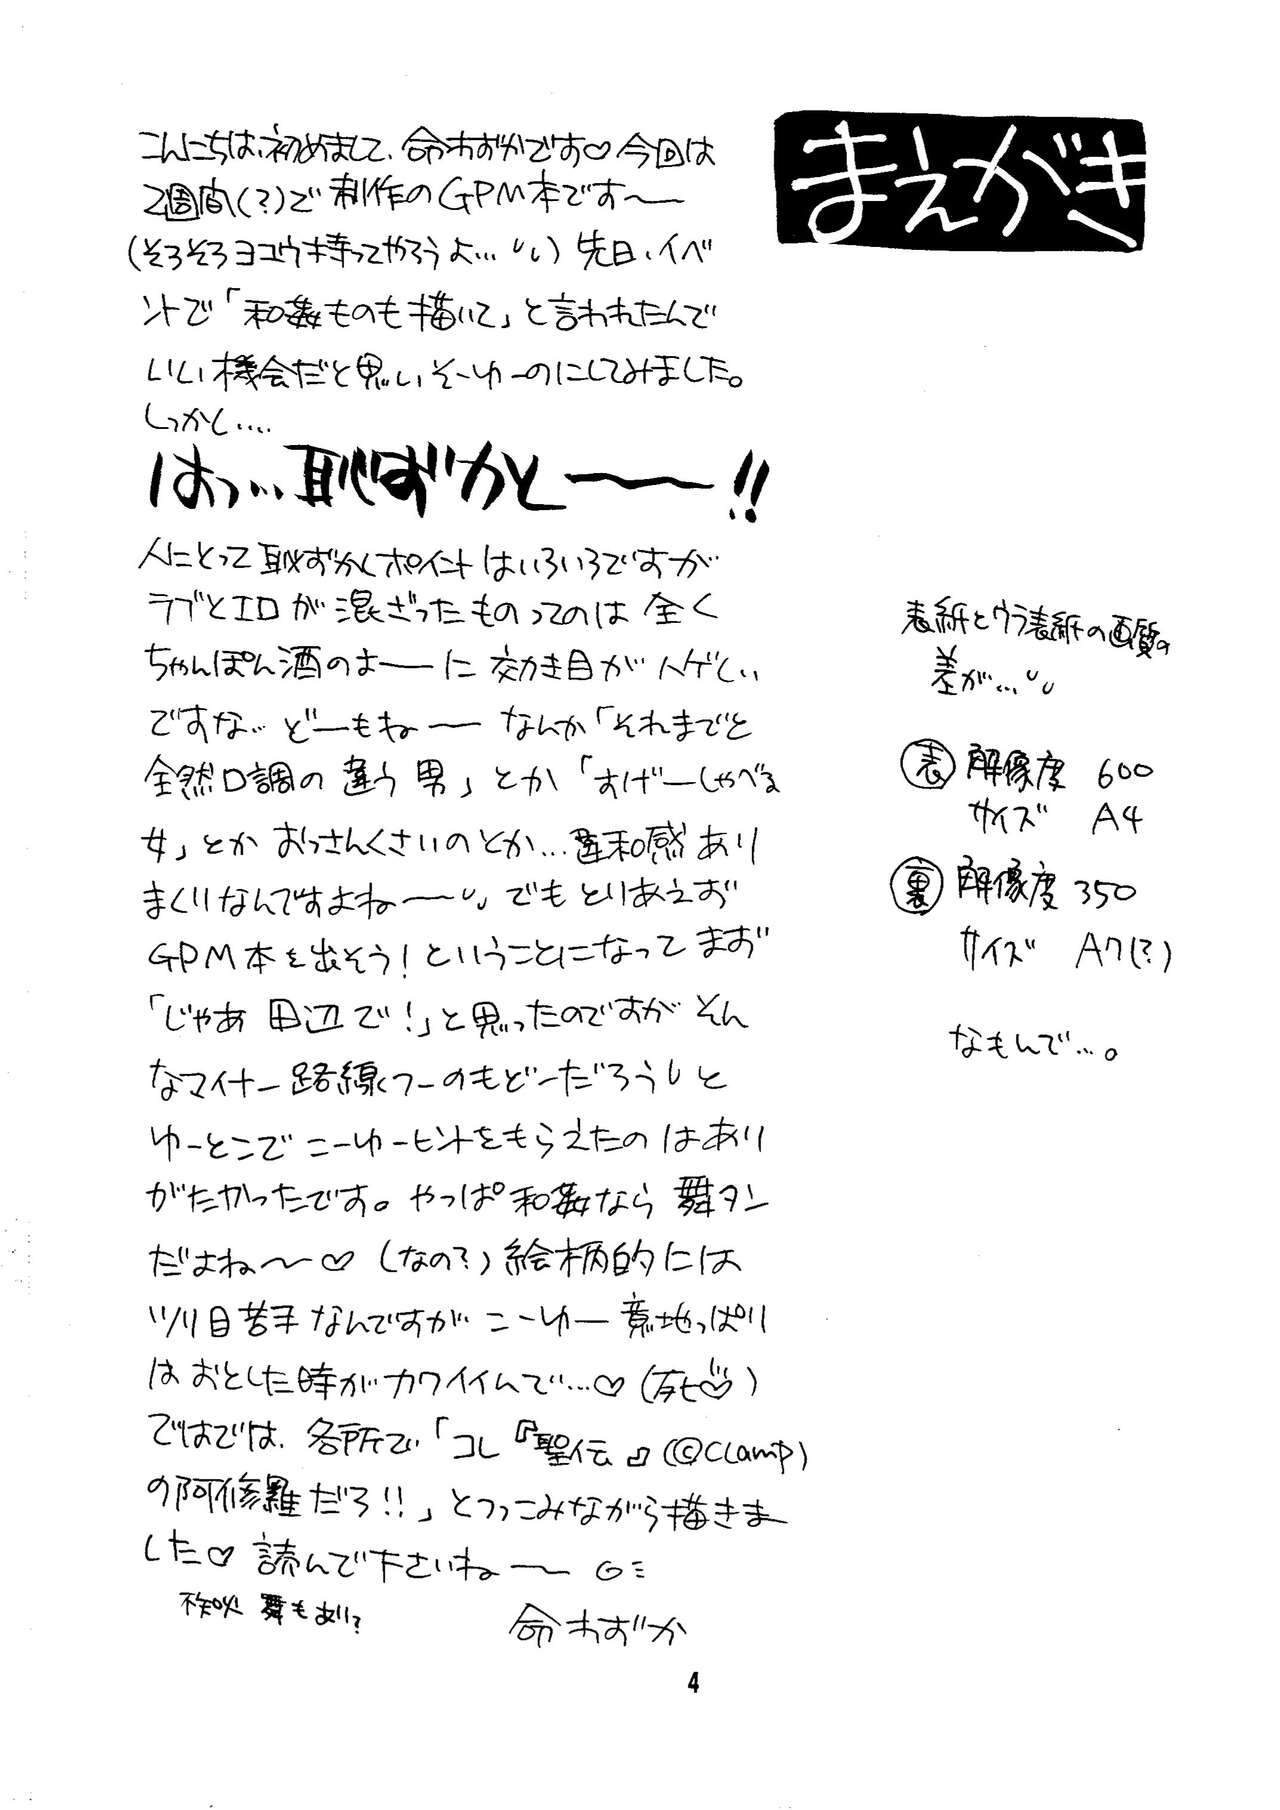 まえがき
こんにちは、初めまして、命わずかです♡今回は
2週間(?)で制作のGPM本です〜
(そろそろヨユウ持ってやろうよ…) 先日、イベ
ントで「和姦ものも描いて」と言われたんで
いい機会だと思いそーゆーのにしてみました。
しっかし‥‥
はっ…恥ずかと——〜!!
人にとって恥ずかしポイントはいろいろですが
ラブとエロが混ざったものってのは全く
ちゃんぽん酒のよーに効き目がハゲしい
ですな… どーもね〜 なんか「それまでと
全然口調の違う男」とか「すげーしゃべる
女」とかおっさんくさいのとか…違和感あり
まくりなんですよね〜 でもとりあえず
GPM本を出そう!ということになってまず
「じゃあ田辺で!」と思ったのですがそん
なマイナー路線くつーのもどーだろうと
ゆーとこでこーゆーヒントをもらえたのはあり
がたかったです。やっぱ和姦なら舞タン
だよね〜♡(なの?)絵柄的には
ツリ目苦手なんですがこーゆー意地っぱり
はおとした時がカワイイんで…♡(死♡)
ではでは、各所で「コレ『聖伝』(©CLAMP)
の阿修羅だろ!!」とつっこみながら描きま
した♡読んで下さいね〜
舞もあり?
命わずか
表紙とウラ表紙の画質の
差が…
表 解像度 600
サイズ A4
裏 解像度 350
サイズ A7(?)
なもんで…。
4